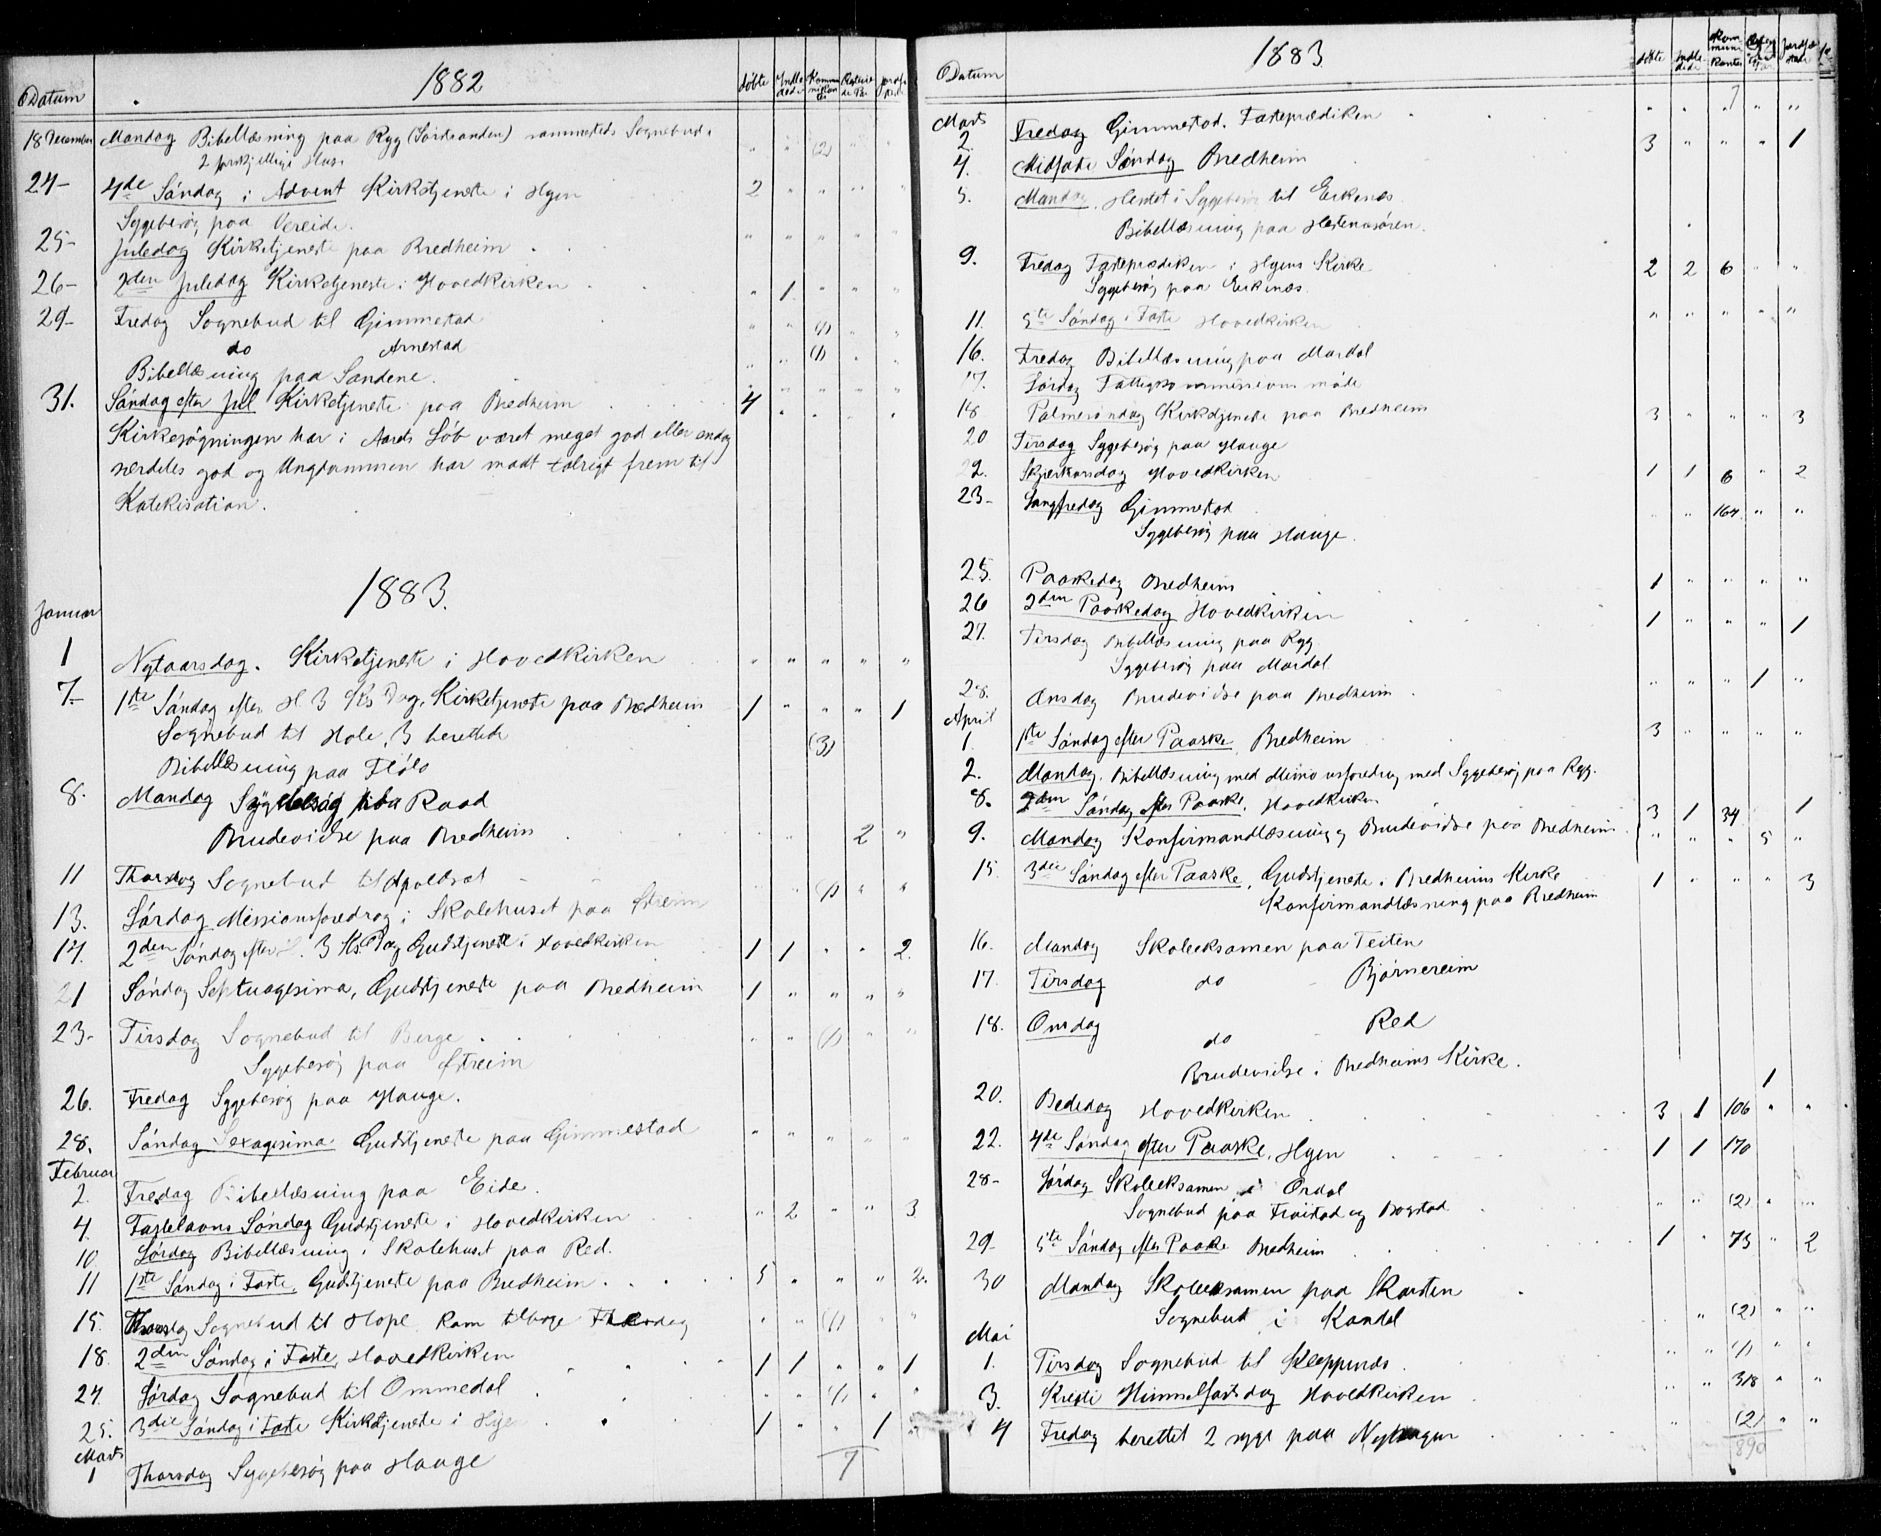 1882
Datum døbte Indledede Kommunikanter
18 December Mandag Bibellæsning paa Ryg (Sørstranden) sammesteds Sognebud i " " (2) " "
2 forskjellige Huse
24- 4de Søndag i Advent Kirketjeneste i Hyen 2 " " " "
Sygebesøg paa Vereide.
25- Juledag Kirketjeneste paa Bredheim " " " " "
26- 2den Juledag Kirketjeneste i Hovedkirken " 1 " " "
29- Fredag Sognebud til Gimmestad " " (1) " "
do Arnestad (1)
Bibellæsning paa Sandene.
31. Søndag efter Jul Kirketjeneste paa Bredheim 4 " " " "
Kirkesøgningen har i Aarets Løb været meget god eller endog
særdeles god og Ungdommen har mødt talrigt frem til
Katekisation.
1883.
Januar
1 Nytaarsdag. Kirketjeneste i Hovedkirken " " " " "
7- 1ste Søndag efter H 3 Ks Dag, Kirketjeneste paa Bredheim 1 " " " 1
Sognebud til Hole, 3 berettede (3)
Bibellæsning paa Flølo
8. Mandag Sygebesøg paa Raad
Brudevielse paa Bredheim " " 2 "
11 Thorsdag Sognebud til Apaldsæt " " (1) " "
13. Lørdag Missionsforedrag i Skolehuset paa Østreim
14. 2den Søndag efter H. 3 Ks. Dag Gudstjeneste i Hovedkirken 1 1 " " 2.
21 Søndag Septuagesima, Gudstjeneste paa Bredheim 1 " " " "
23- Tirsdag Sognebud til Berge. " " (1) " "
Sygebesøg paa Østreim
26. Fredag Sygebesøg paa Hauge.
28. Søndag Sexagesima Gudstjeneste paa Gimmestad " " " " "
Februar
2. Fredag Bibellæsning paa Eide.
4. Fastelavns Søndag Gudstjeneste i Hovedkirken " 2 " " 3
10 Lørdag Bibellæsning i Skolehuset paa Red.
11 1ste Søndag i Faste, Gudstjeneste paa Bredheim 5 " " " 2.
15. Thorsdag Sognebud til Hope. Kom tilbage Thorsdag " " (1) " "
18. 2den Søndag i Faste, Hovedkirken 1 1 " " 1
24. Lørdag Sognebud til Ommedal " " (1) " "
25. 3die Søndag i Faste Kirketjeneste i Hyen 1 " " 1 "
Marts
1 Thorsdag Sygebesøg paa Hauge
7
1883
Datum døbte Indledede Kommunikanter
7
Marts
2. Fredag Gimmestad. Fasteprædiken " " " "
4. Midfaste Søndag Bredheim 3 " " " 1
5. Mandag. Hentet i Sygebesøg til Eikenæs
Bibellæsning paa Hestenæsøren.
9. Fredag Fasteprædiken i Hyens Kirke 2 2 6 " "
Sygebesøg paa Eikenæs
11. 5te Søndag i Faste Hovedkirken " " " " "
16. Fredag Bibellæsning paa Mardal
17. Lørdag Fattigkommissions møde
18 Palmesøndag Kirketjeneste paa Bredheim 3 " " " 3
20 Tirsdag Sygebesøg paa Hauge
22. Skjærtorsdag Hovedkirken 1 1 6 " 2
23- Langfredag Gimmestad " " 164 " "
Sygebesøg paa Hauge.
25. Paaskedag Bredheim 1 " " " "
26 2den Paaskedag Hovedkirken 1 " " " 1
27. Tirsdag Bibellæsning paa Ryg.
Sygebesøg paa Mardal
28. Onsdag Brudevielse paa Bredheim " " " 1 "
April
1. 1ste Søndag efter Paaske. Bredheim 3 " " " "
2. Mandag. Bibellæsning med Missionsforedrag med Sygebesøg paa Ryg.
8. 2den Søndag efter Paaske, Hovedkirken 3 1 34 1
9. Mandag Konfirmandlæsning og Brudevielse paa Bredheim " " " 5 "
15. 3die Søndag efter Paaske, Gudstjeneste i Bredheims Kirke 1 " " " 3
Konfirmandlæsning paa Bredheim
16. Mandag Skoleeksamen paa Teiten
17. Tirsdag do - Bjørnereim
18. Onsdag do - Red
Brudevielse i Bredheims Kirke. 1
20. Bededag Hovedkirken 3 1 106 " "
22. 4de Søndag efter Paaske, Hyen 1 1 170
28- Lørdag Skoleeksamen i Ordal
Sognebud paa Traistad og Bogstad " " (2) " "
29- 5te Søndag efter Paaske Bredheim 1 " 73 " 2
30 Mandag Skoleeksamen paa Skarsten
Sognebud i Kandal " (2) " "
Mai
1. Tirsdag Sognebud til Kleppenæs. " " (1) " "
3. Kristi Himmelfartsdag Hovedkirken " " 318 " "
4 Fredag berettet 2 syge paa (2) " "
890